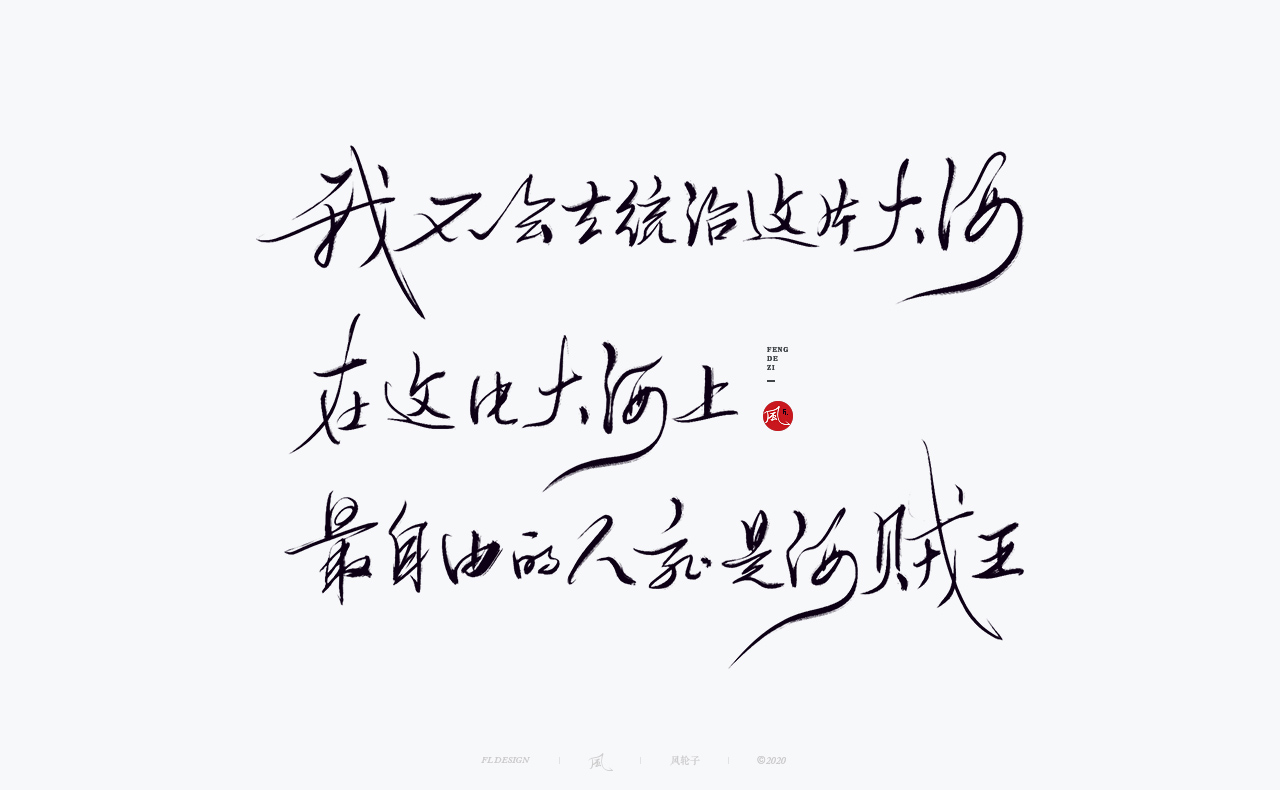 我不会去统治这片大海
在这片大海上
FENG
DE
ZI
風
最自由的人就是海贼王
FL DESIGN
風
风轮子
©2020